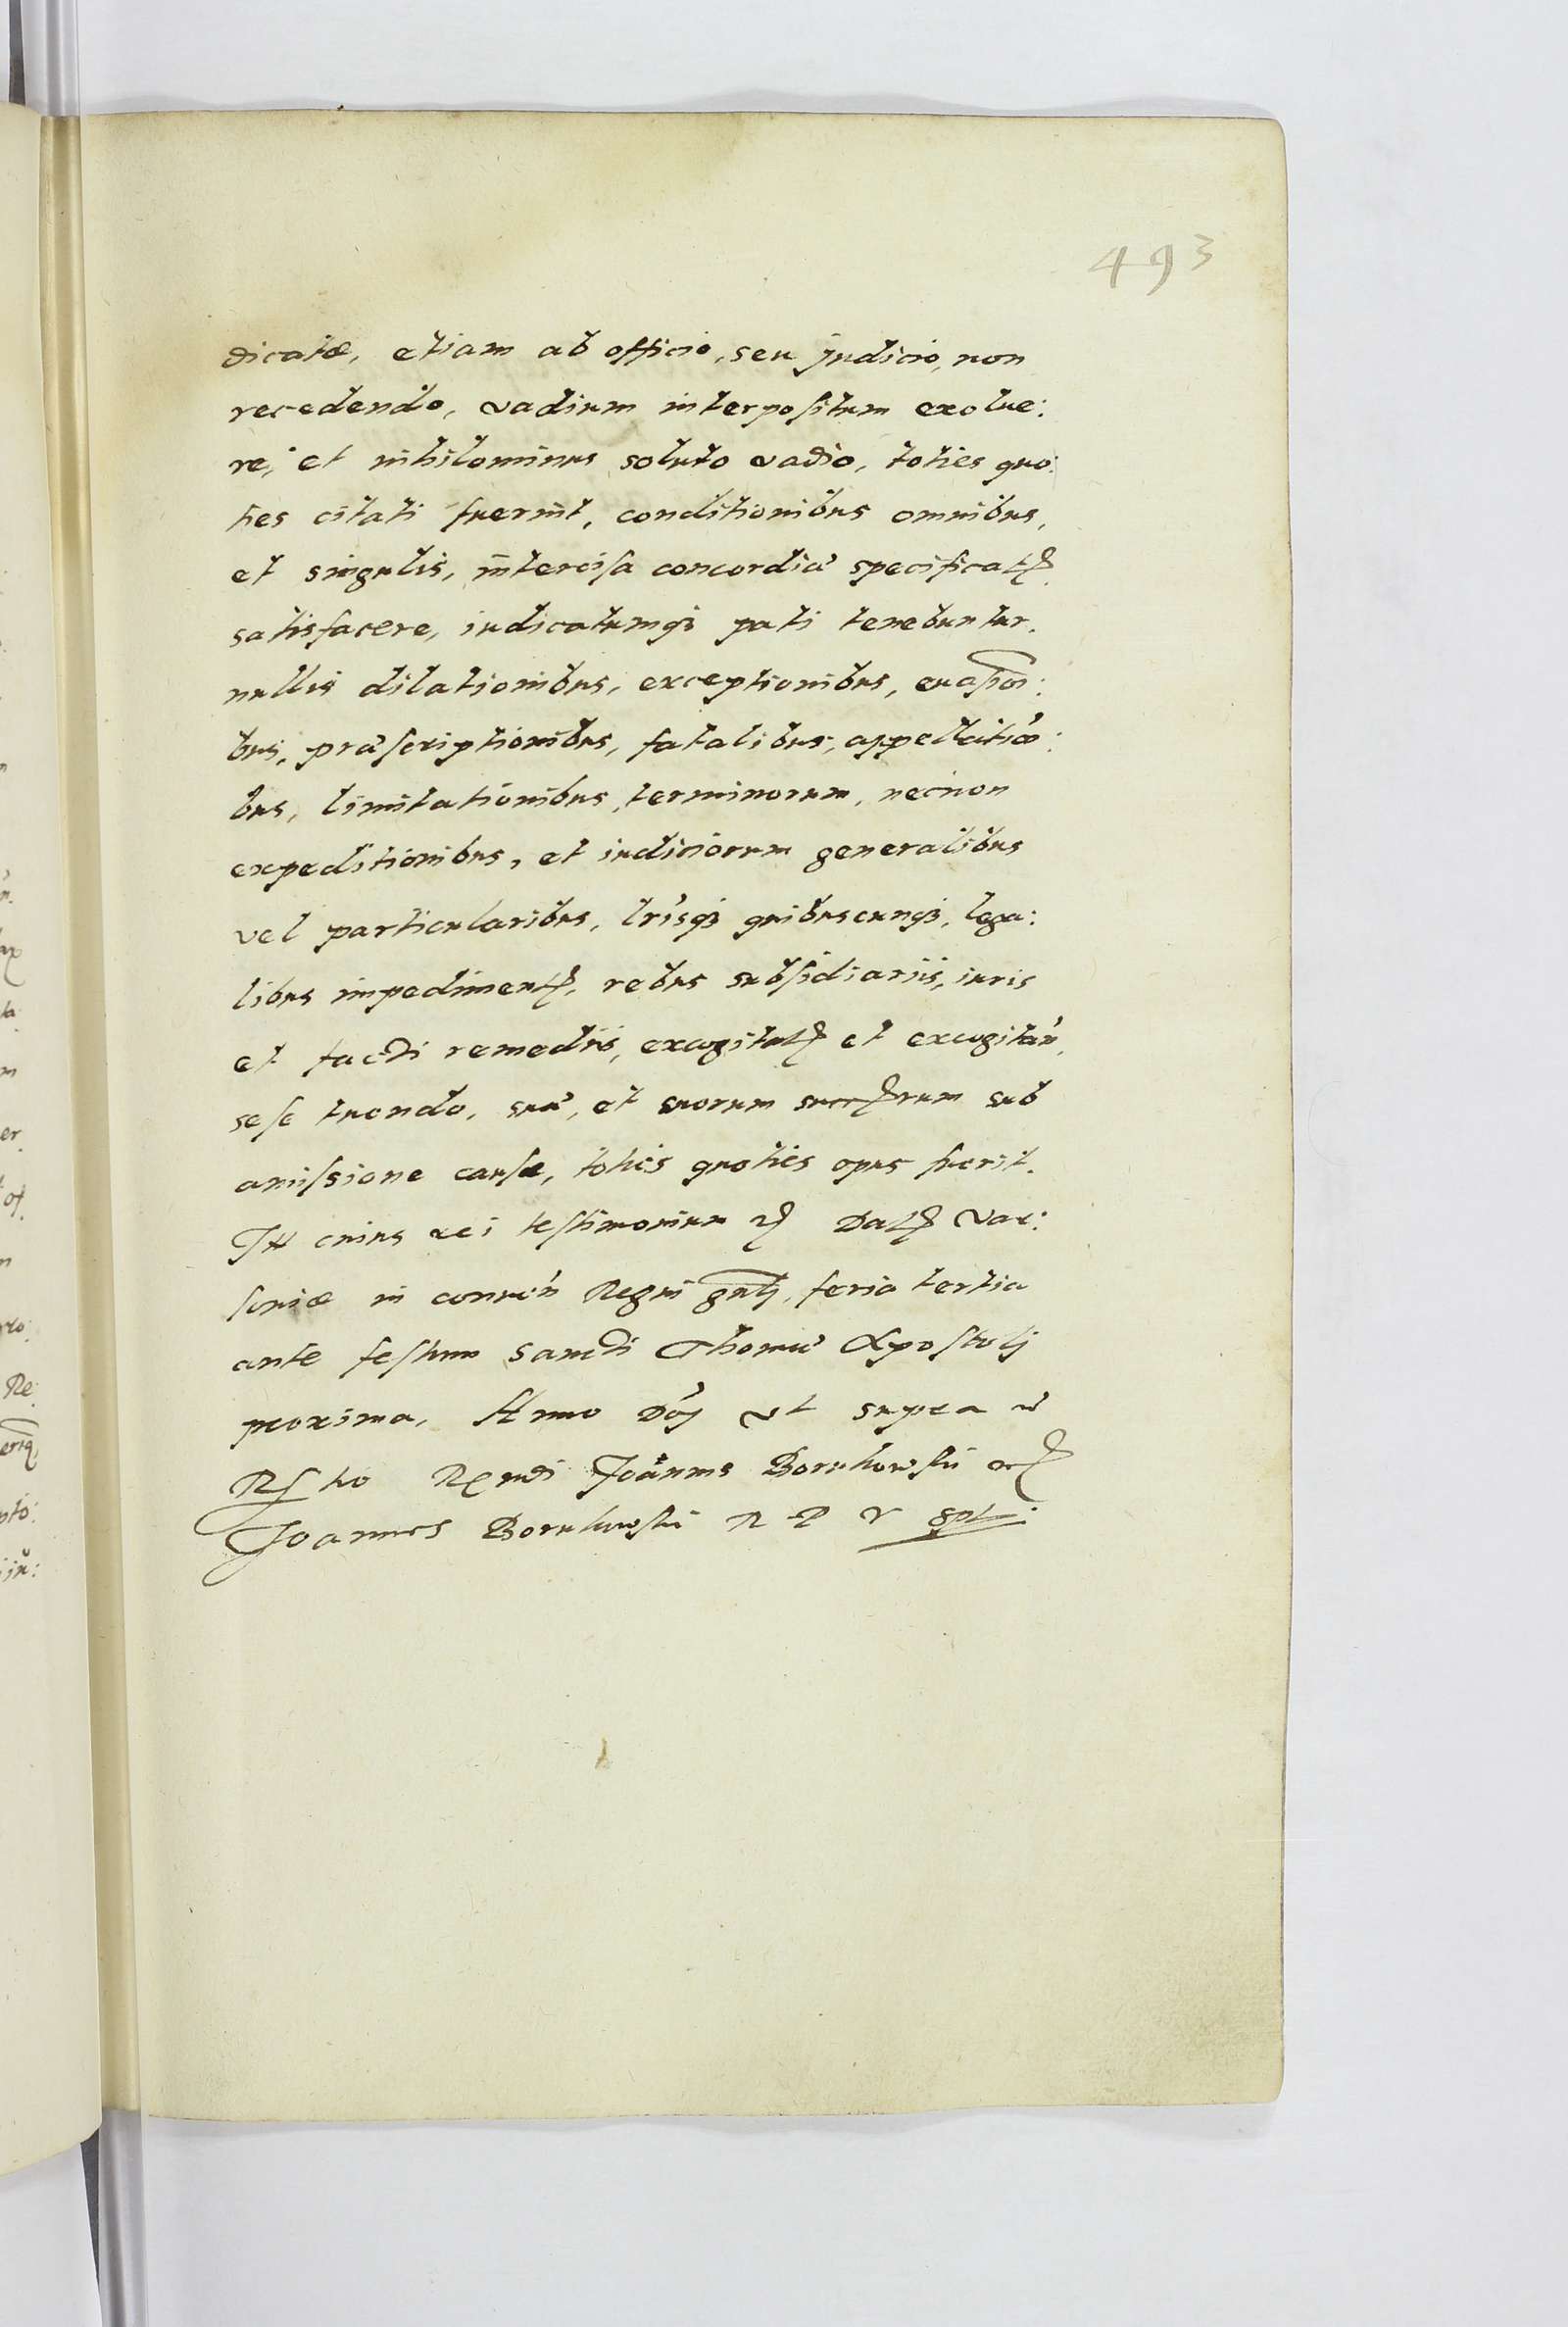 493
dicatæ, etiam ab officio, seu judicio, non
recedendo, vadium interpositum exolue:
re, et nihilominus soluto vadio, toties quo:
ties citati fuerint, conditionibus omnibus,
et singulis, intercisa concordia specificatꝭ
satisfacere, iudicatumqꝫ pati tenebuntur.
nullis dilationibus, exceptionibus, euasioni:
bus, præscriptionibus, fatalibus, appellatio:
bus, limitationibus, terminorum, necnon
expeditionibus, et iudiciorum generalibus
vel particularibus, lrisqꝫ quibuscunqꝫ, lega:
libus impedimentꝭ, rebus subsidiariis, iuris
et facti remediis, excogitatꝭ et excogitan̄,
sese tuendo, sua, et suorum succꝭrum sub
amissione causæ, toties quoties opus fuerit.
In cuius rei testimonium ꝛꝭ Datꝭ Var:
souiæ in conuen̄ Regni gn̄li, feria tertia
ante festum Sancti Thomæ Apostolj
proxima, Anno Dn̄j vt supra
Joannis Borukowski
Joannes Borukowski R P V